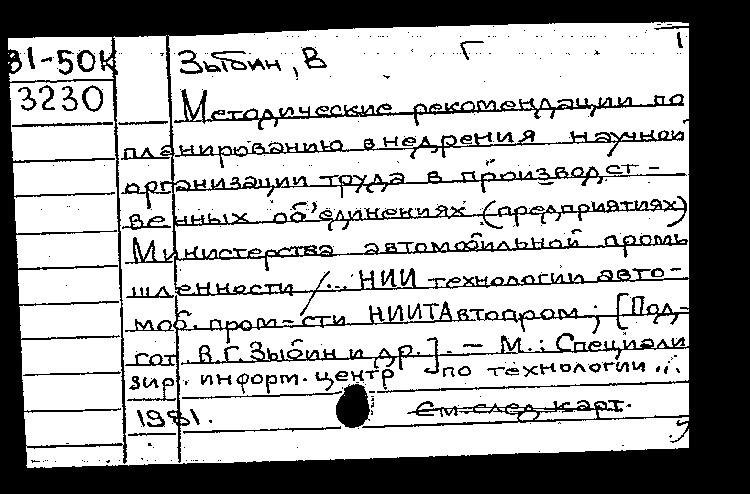 81-50К
3230
Зыбин, В Г 1
Методические рекомендации по
планированию внедрения научной
организации труда в производст-
венных об'единениях (предприятиях)
Министерства автомобильной промы
шленности /... НИИ технологии авто-
моб. пром-сти НИИТАвтопром; [Под-
гот. В.Г. Зыбин и др.]. - М.: Специали
зир. информ. центр по технологии ...
1981. См. след. карт.